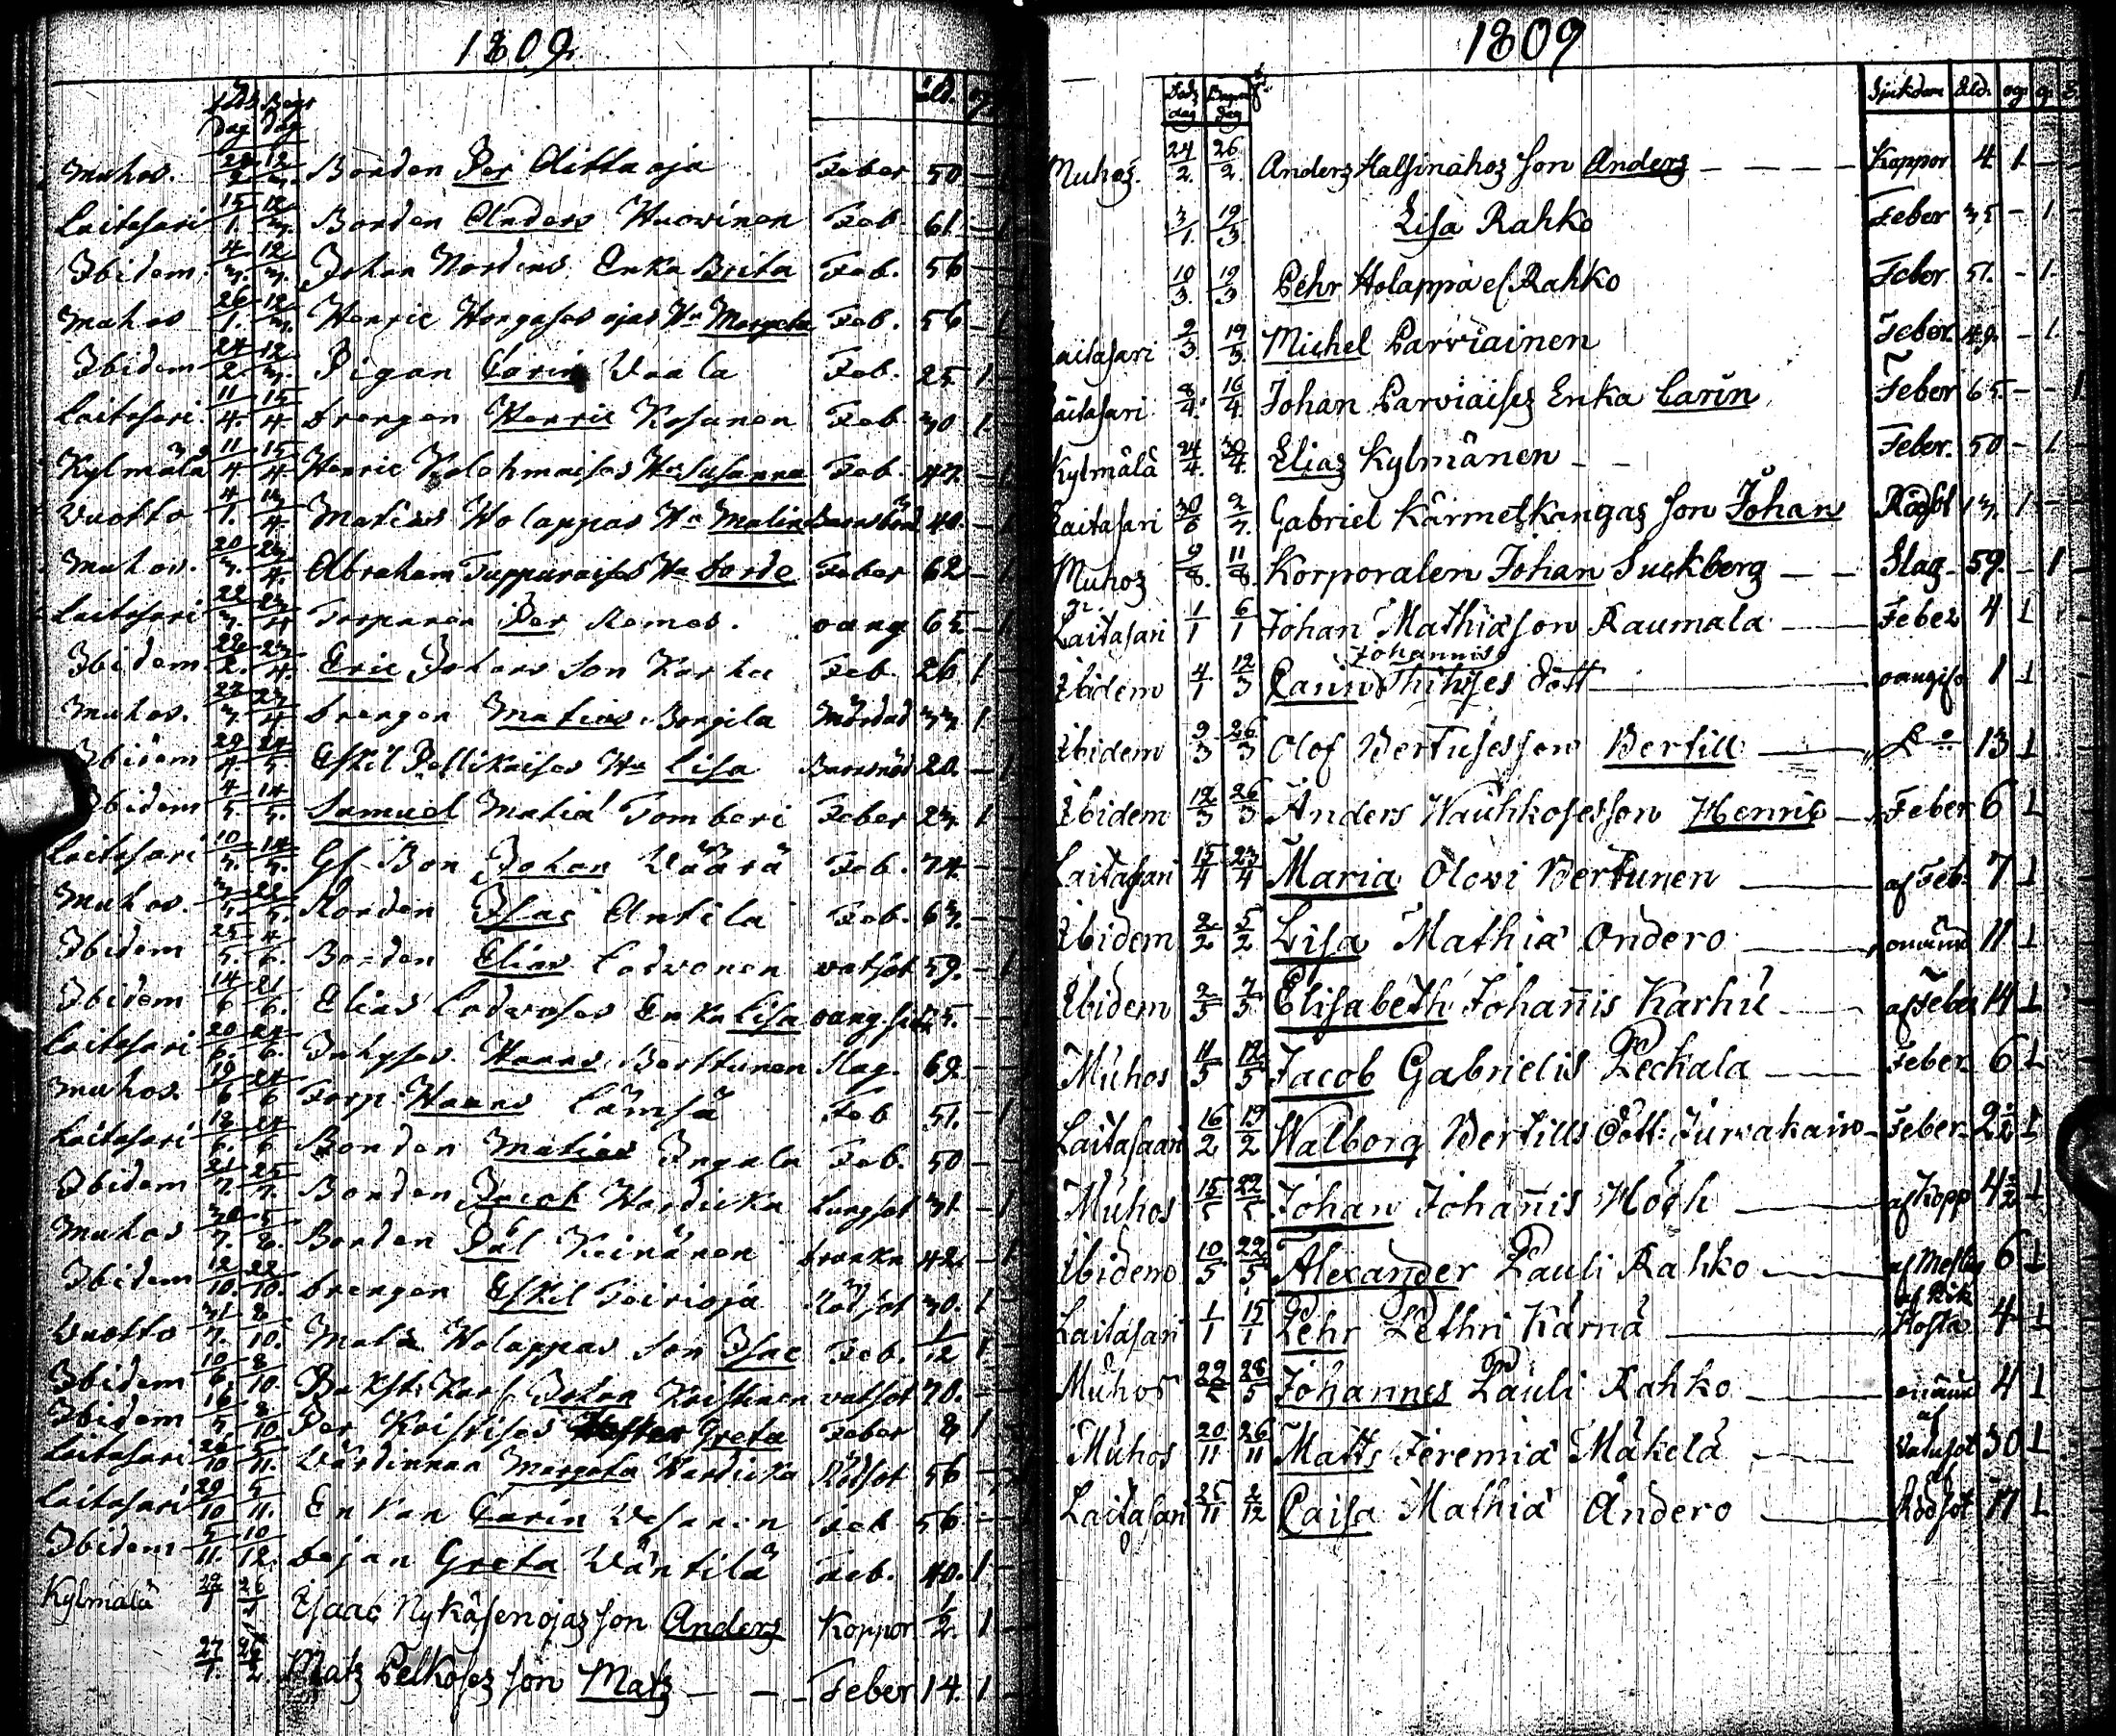 1809.
Död Begr
dag dag
åld.
Muhos. 12/3. Bonden Per Alittaoja Feber 50 –
Laitasari 15/1. 12/3. Bonden Anders Huovinen Feb. 61. – 1
Ibidem. 4/3. 12/3. Johan Nordins Enka Brita Feb. 56 –
Muhos 26/1. 12/3. Henric Hongasos ojas Hu Margeta Feb. 56 – 1
Ibidem 24/2. 12/3. Pigan Carin Vaala Feb. 25. 1
Laitasari. 11/4. 15/4 Drengen Henric Kosunen Feb. 30 1.
Kylmälä 11/4 15/4. Henric Kolehmaises Hu Susanna Feb. 47. – 1
Vuotto 4/1. 13/4. Matias Holappas Hu Malin Barnsbörd 40. – 1
Muhos. 20/3. 23/4. Abraham Tupparaises Hu Dorde Feber 62 – 1
Laitasari 22/3. 23/4 Torparen Per Remes. oang 65. –
Ibidem 22/2. 23/4. Eric Johans Son Karhu Feb. 26 1
Muhos. 22/3. 23/4 Drengen Matias Bongila Mördad 33. 1
Ibidem 29/4 14/5 Eskil Pellikaises Hu Lisa Barnsnöd 20. – 1
Ibidem 4/5. 14/5. Samuel Matiæ Tomberi Feber 23. 1
Laitasari 10/5. 14/5. Gl. Bon Johan Väärä Feb. 74. –
Muhos. 3/5. 22/5. Bonden Isac Antila Feb. 63. –
Ibidem 25/5. 4/6. Bonden Elias Lodvonen vatsot 59. – 1
Ibidem 14/6 21/6. Elias Lodvoses Enka Lisa oang.
Laitasari 20/6. 24/6. Inhyses Hanns Berttunen Slag. 69. –
Muhos. 19/6 24/6 Torp. Hanns Lämsä Feb 51. – 1
Laitasari 18/6. 24/6 Bonden Matias Ingala Feb. 50 –
Ibidem 21/7. 25/7. Bonden Jacob Hardicka Lungsot 31. – 1
Muhos 30/7. 5/8. Bonden Pål Keinänen drunkn 42. – 1
Ibidem 12/10. 22/10. Drengen Eskil Toirioja Rödsot 30. 1
Vuotto 31/7. 8/10. Mats Holappas Son Isac Feb. 1/12 1
Ibidem 10/6. 8/10. Johan Keistinen vatsot 70. –
Ibidem 16/5 8/10 Per Keistises Greta Feber 8 1
Laitasari 26/10 5/11. Värdinnan Margeta Hardicka Rödsot 56 –
Laitasari 29/10 5/11. Enkan Carin Vesanen Feb 56 –
Ibidem 5/11. 10/12. Dejan Greta Väntilä Feb. 40. 1
Kylmälä 29/1 Isaac Nykäsenojas son Anders Koppor 1/2. 1
27/1. Matz Pelkoses son Matz – – – Feber 14. 1
1809
Död dag Begrafn dag Sjukdom Åld. og. g. E.
Muhos. 24/2. 26/2. Anders Halsinahos son Anders – – – – Koppor 4 1 –
3/1. 19/3. Lisa Rahko Feber 35 – 1
10/3. 19/3 Pehr Holappa el. Rahko Feber 51. – 1
Laitasari 9/3. 19/3. Michel Parviainen Feber. 49. – 1.
Laitasari 8/4. 16/4. Johan Parviaises Enka Carin Feber 65 – – 1
Kylmälä 24/4. 30/4. Elias Kylmänen – – Feber. 50 – 1.
Laitasari 30/6 2/7. Gabriel Kärmelkangas son Johan Rödst 13. 1
Muhos 9/8. 11/8. Korporalen Johan Suckberg – – Slag. 59. – 1
Laitasari 1/1 6/1 Johan Mathiæ son Raumala Feber 4 1
Ibidem 4/1 12/3 Johannis dött 1 1
Ibidem 9/3 26/3 Olof Bertuses son Bertill 13 1
Ibidem 12/3 26/3 Anders Hauhkoses son Henric Feber 6 1
Laitasari 15/4 23/4 Maria Olovi Bertunen af Feb. 7 1
Ibidem 2/2 5/2 Lisa Mathiæ Ondero 11 1
Ibidem 2/5 7/5 Elisabeth Johannis Karhu af Feber 14 1
Muhos 4/5 12/5 Jacob Gabrielis Peckala Feber. 6 1
Laitasaari 16/2 19/2 Walborg Bertills dott: Jurvakain Feber 2 1/2 1
Muhos 15/5 22/5 Johan Johannis Höök af Kopp 4 1/2 1
Ibidem 10/5 22/5 Alexander Pauli Rahko af Messl. 6 1
Laitasari 1/1 15/1 Pehr Pethri Kärnä af Kik Hosta 4 1
Muhos 22/5 28/5 Johannes Pauli Rahko 4 1
Muhos 20/11 26/11 Matts Jeremiæ Mäkelä af Vatusot 30 1
Laitasari 25/11 2/12 Caisa Mathiæ Andero af Rödsot 17 1